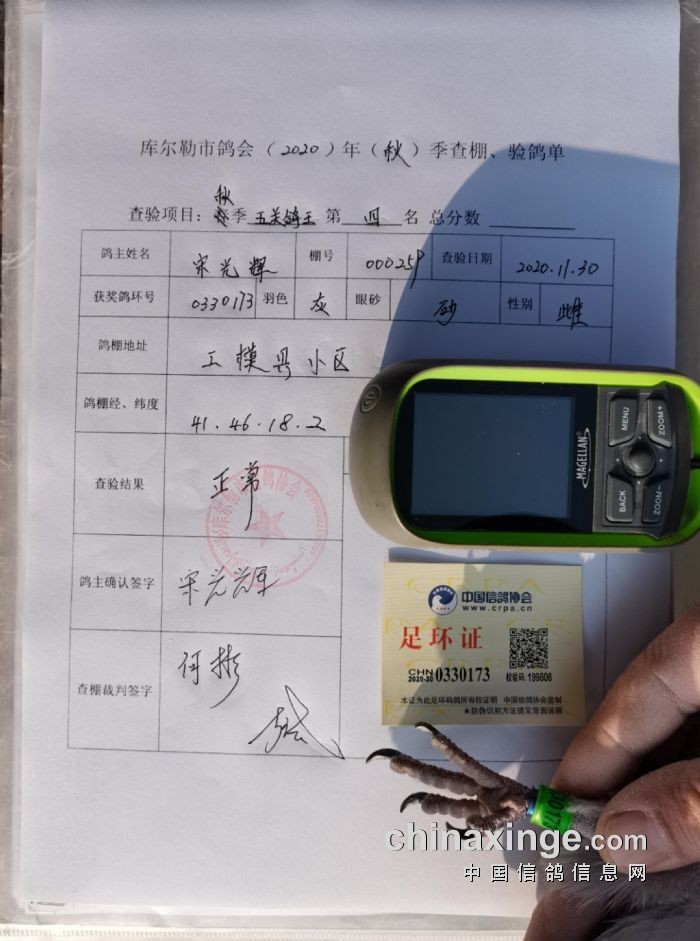 库尔勒市鸽会（2020）年（秋）季查棚、验鸽单
秋
查验项目： 季 五关鸽王 第 四 名 总分数
鸽主姓名 宋光辉 棚号 000259 查验日期 2020.11.30
获奖鸽环号 0330173 羽色 灰 眼砂 砂 性别 雌
鸽棚地址 工模具小区
鸽棚经、纬度 41.46.18.2
查验结果 正常
鸽主确认签字 宋光辉
查棚裁判签字 何彬
MAGELLAN
MENU
ZOOM+
BACK
ZOOM-
中国信鸽协会
www.crpa.cn
足环证
CHN
2020-30 0330173
校验码: 199806
本证为此足环码鸽所有权证明 中国信鸽协会监制
★防伪识别方法请见背面说明
chinaxinge.com
中国信鸽信息网